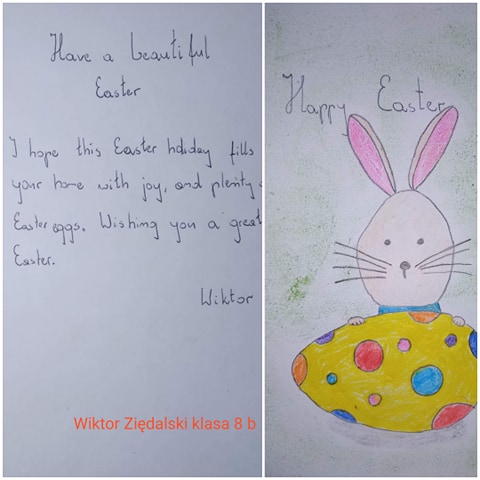 Have a beautiful
Easter
I hope this Easter holiday fills
your home with joy, and plenty
Easter eggs. Wishing you a great
Easter.
Wiktor
Wiktor Ziędalski klasa 8 b
Happy Easter